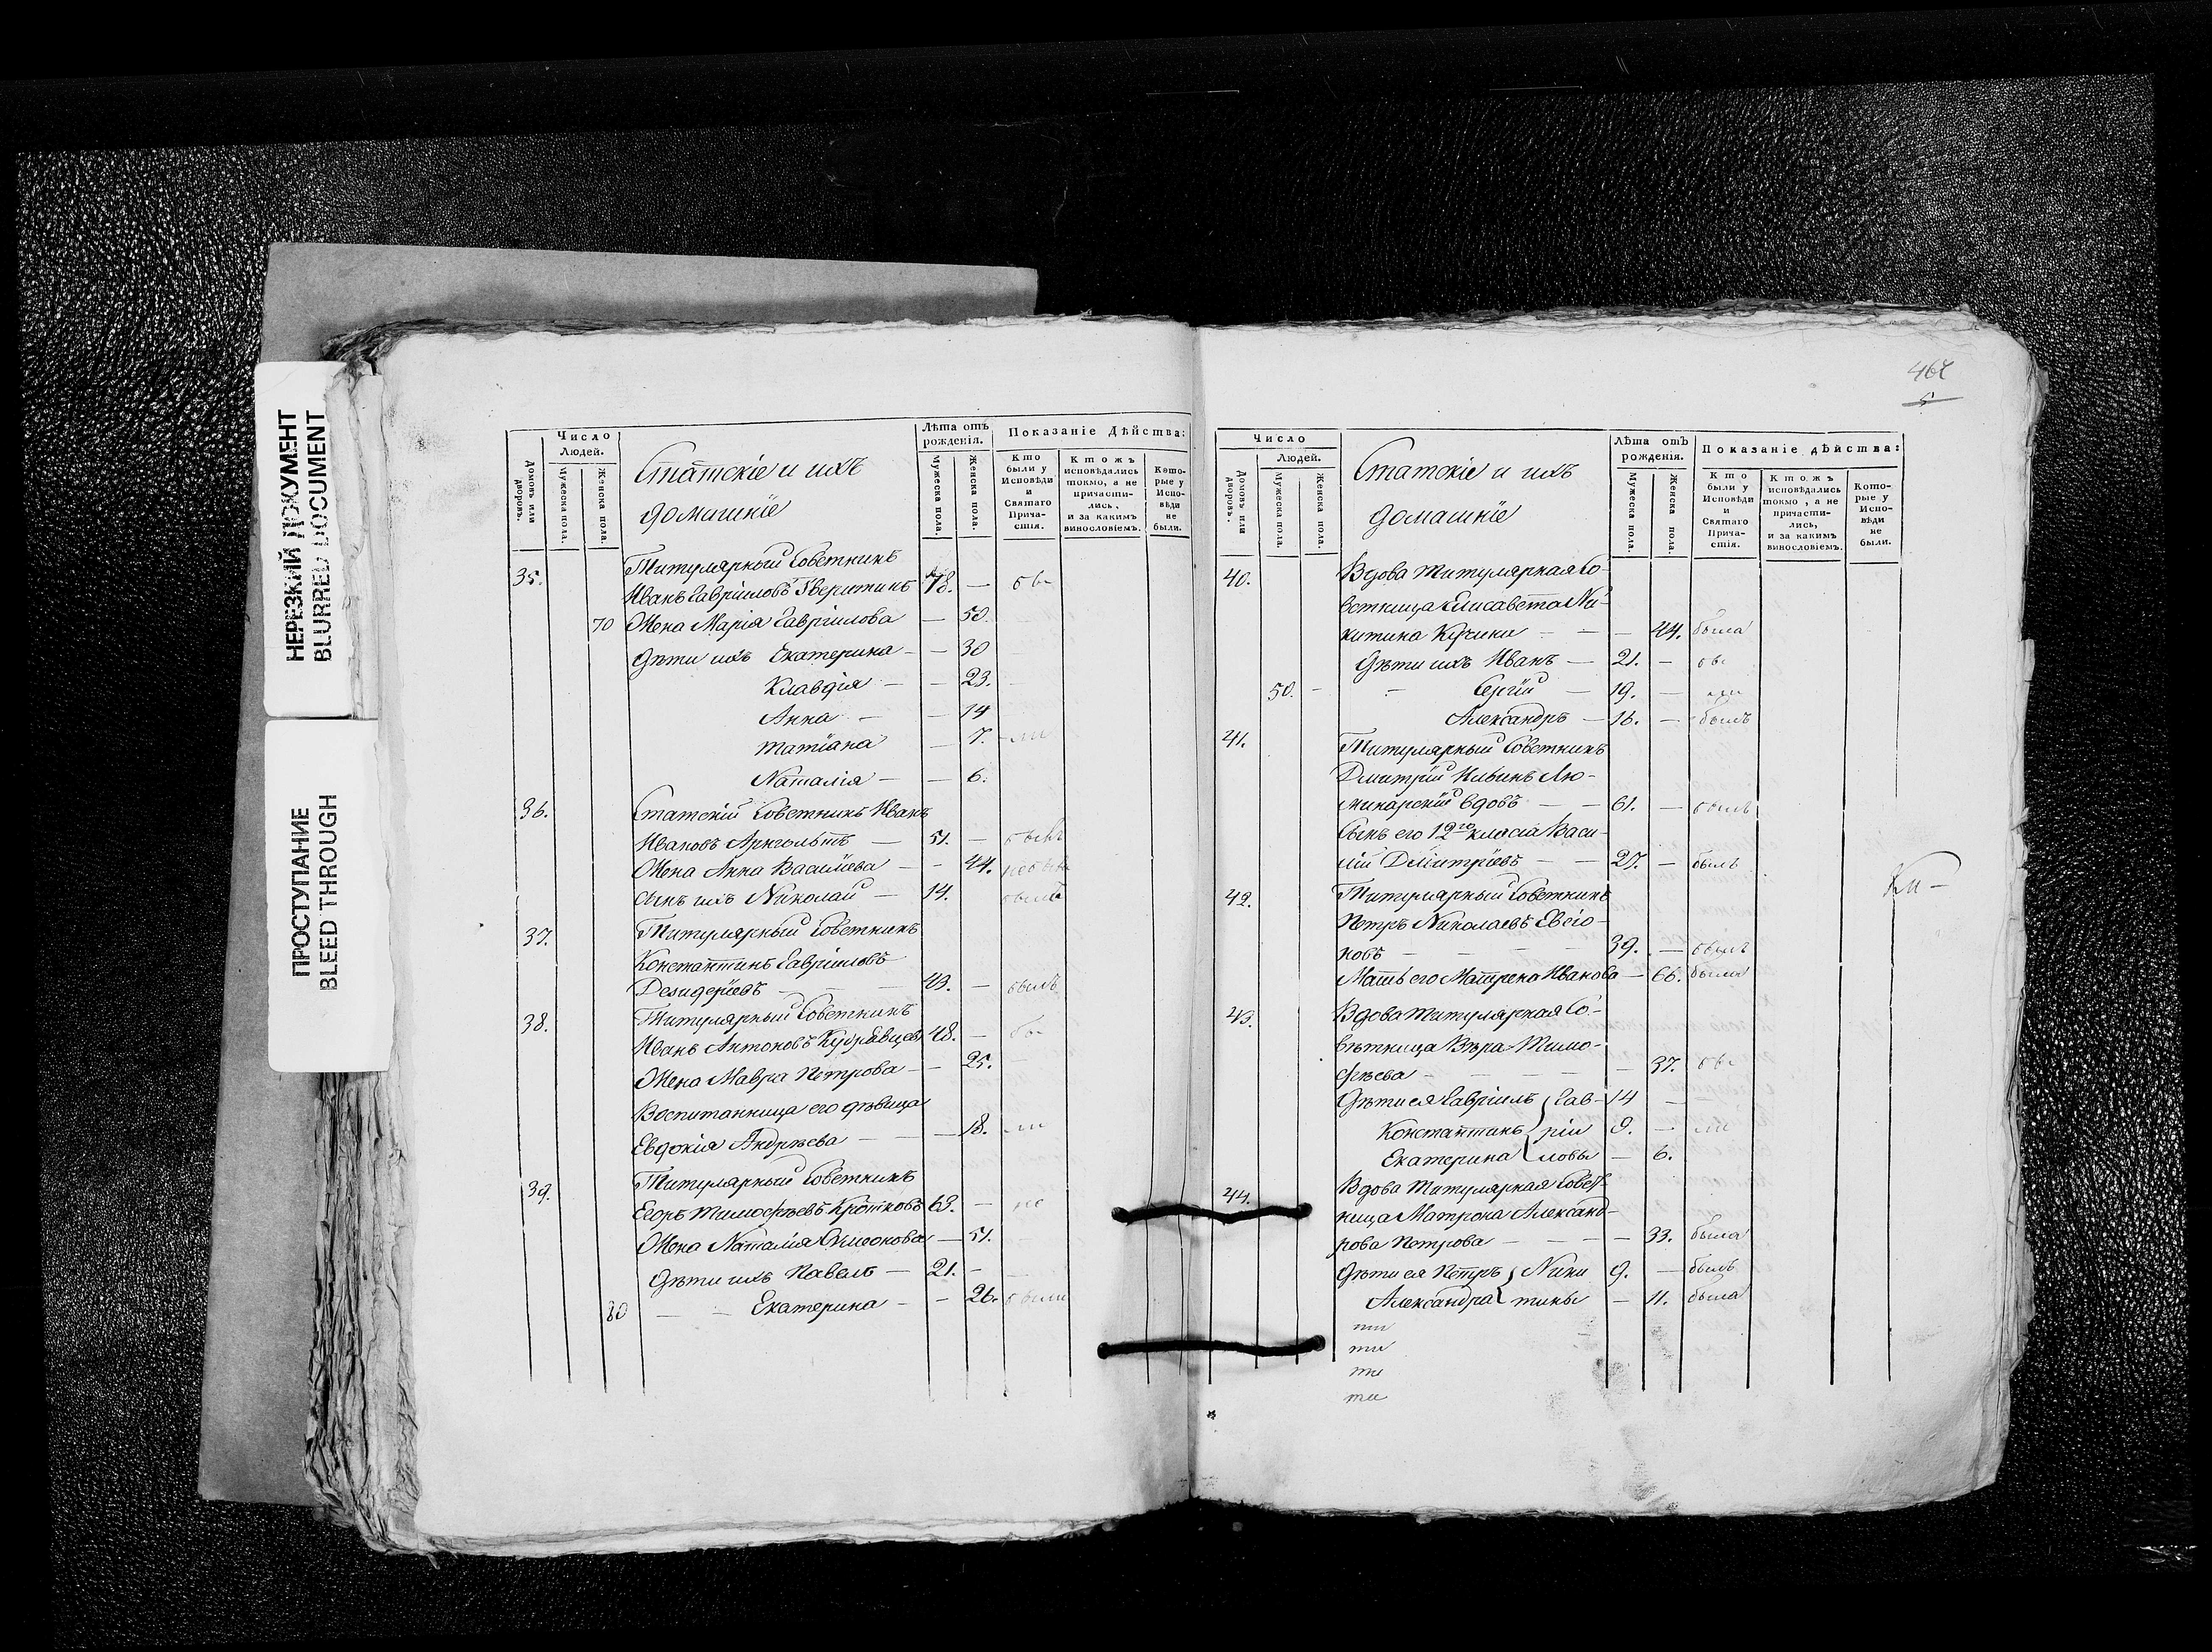 НЕРЕЗКИЙ ДОКУМЕНТ
BLURRED DOCUMENT
ПРОСТУПАНИЕ
BLEED THROUGH
Число
Людей.
Домовъ или дворовъ.
Мужеска пола.
Женска пола.
Статскіе и ихъ
домашніе
Лѣта отъ рожденія.
Мужеска пола.
Женска пола.
Показаніе Дѣйства:
Кто были у Исповѣди и Святаго Прича-стія.
Ктожъ исповѣдались токмо, а не причасти-лись, и за какимъ винословіемъ.
Кото-рые у Испо-вѣди не были.
35. Титулярный Советникъ
Иванъ Гавріиловъ 78. —
70 Жена Марія Гавріилова — 50.
Дѣти ихъ Екатерина — — 30
Клавдія — — 23.
Анна — — 14
Татіана — 7. ли
Наталія — — 6.
36. Статскій Советникъ Иванъ
Ивановъ — 51. — былъ
Жена Анна Василіева — — 44.
сынъ ихъ Николай — 14. былъ
37. Титулярный Советникъ
Константинъ Гавріиловъ
Дезидеріевъ — — 43. — былъ
38. Титулярный Советникъ
Иванъ Антоновъ Кудрявцевъ 48. — бы
Жена Мавра Петрова — — 25.
Воспитанница его дѣвица
Евдокія Андрѣева — — — 18. ли
39. Титулярный Советникъ
Егоръ Тимофѣевъ Кротковъ 63. — не
Жена Наталія Симеонова — 51.
Дѣти ихъ Павелъ — 21. —
80 — — Екатерина — — 26. были
Число
Людей.
Домовъ или дворовъ.
Мужеска пола.
Женска пола.
Статскіе и ихъ
домашніе
Лѣта отъ рожденія.
Мужеска пола.
Женска пола.
Показаніе дѣйства:
Кто были у Исповѣди и Святаго Прича-стія.
Ктожъ исповѣдались токмо, а не причасти-лись, и за какимъ винословіемъ.
Кото-рые у Испо-вѣди не были.
40. Вдова титулярная Со-
ветница Елисавета Ни-
китина — — — 44. была
Дѣти ихъ Иванъ — 21. —
50. — — Сергій — 19. —
Александръ — 16. — былъ
41. Титулярный Советникъ
Дмитрій Ильинъ Лю-
минарскій вдовъ — — 61. — былъ
Сынъ его 12го класса Васи-
лій Дмитріевъ — — 27. — былъ
42. Титулярный Советникъ
Петръ Николаевъ Евсіо-
новъ — — — 39. — былъ
Мать его Матрена Иванова — 66. была
43. Вдова титулярная Со-
вѣтница Вѣра Тимо-
фѣева — — — — — 37.
Дѣти ея Гавріилъ Гав- 14 —
Константинъ ріи 9. — ли
Екатерина ловы — 6.
44. Вдова титулярная Совет-
ница Матрона Александ-
рова Петрова — — — — 33. была
Дѣти ея Петръ Ники 9. — былъ
Александра тины — 11. была
ти
ти
ти
ти